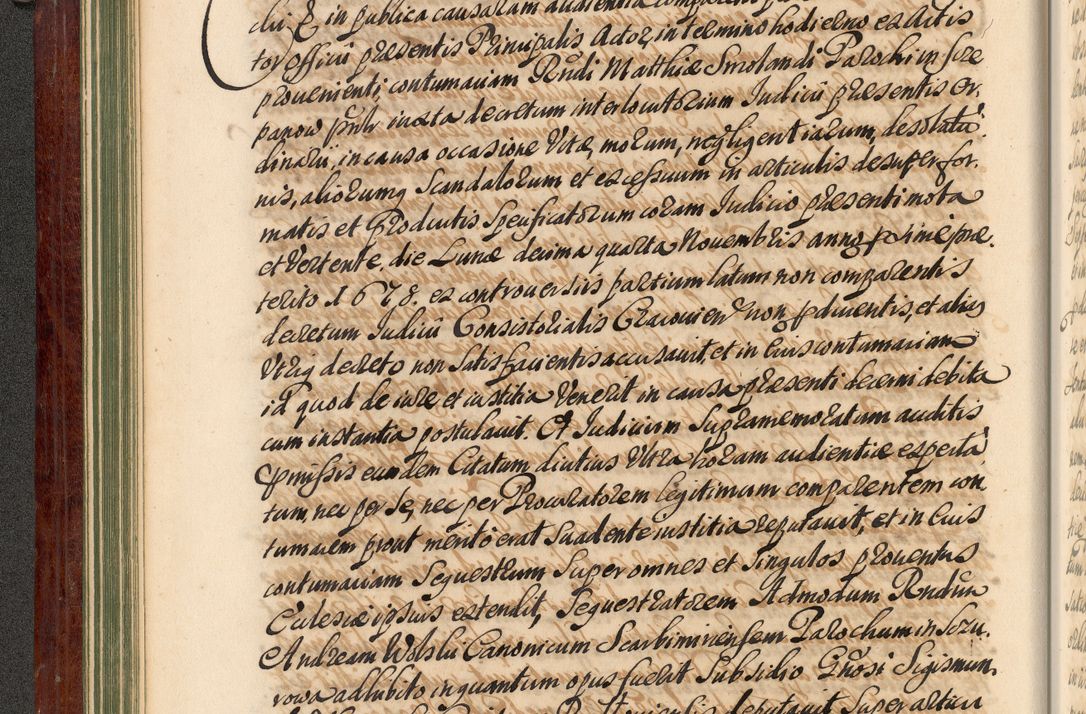 in publica causarum audientia comparens
tor Officii præsentis Principalis Actor, in termino hodierno ex Actis
prouenienti contumaciam Rndi Matthiæ Smolandi Parochi in Szre
panow pnlr iuxta decretum interlocutorium Iudicii præsentis Or.
dinarii, in causa occasione Vitæ, morum, negligentiarum, desolatio
nis, aliorumq Scandalorum et excessuum in articulis desuper for.
matis et Productis Specificatorum coram Iudicio præsenti mota
et Vertente, die Lunæ decima quarta Nouembris anno proxime præ.
terito 1678. ex controuersiis partium latum non comparentis
decretum Iudicii Consistorialis Cracouien non pdiucentis, et aliis
Vtriq decreto non satisfacientis accusauit, et in Eius contumaciam
id quod de iure et iustitia Venerit in causa præsenti decerni debita
cum instantia postulauit. Et Iudicium Supramemoratum auditis
pmissis eundem Citatum diutius Vltra horam audientiæ expecta
tum, nec per se, nec per Procuratorem legitimum comparentem con
tumacem prout merito erat Suadente iustitia reputauit, et in Eius
contumaciam Sequestrum Super omnes et Singulos prouentus
Ecclesiæ ipsius extendit, Sequestratorem Admodum Rndum
Andream Wolski Canonicum Scarbimiriensem Parochum in Szzu.
rowa adhibito inquantum opus fuerit Subsidio Gnosi Sigismun.
deputauit Super